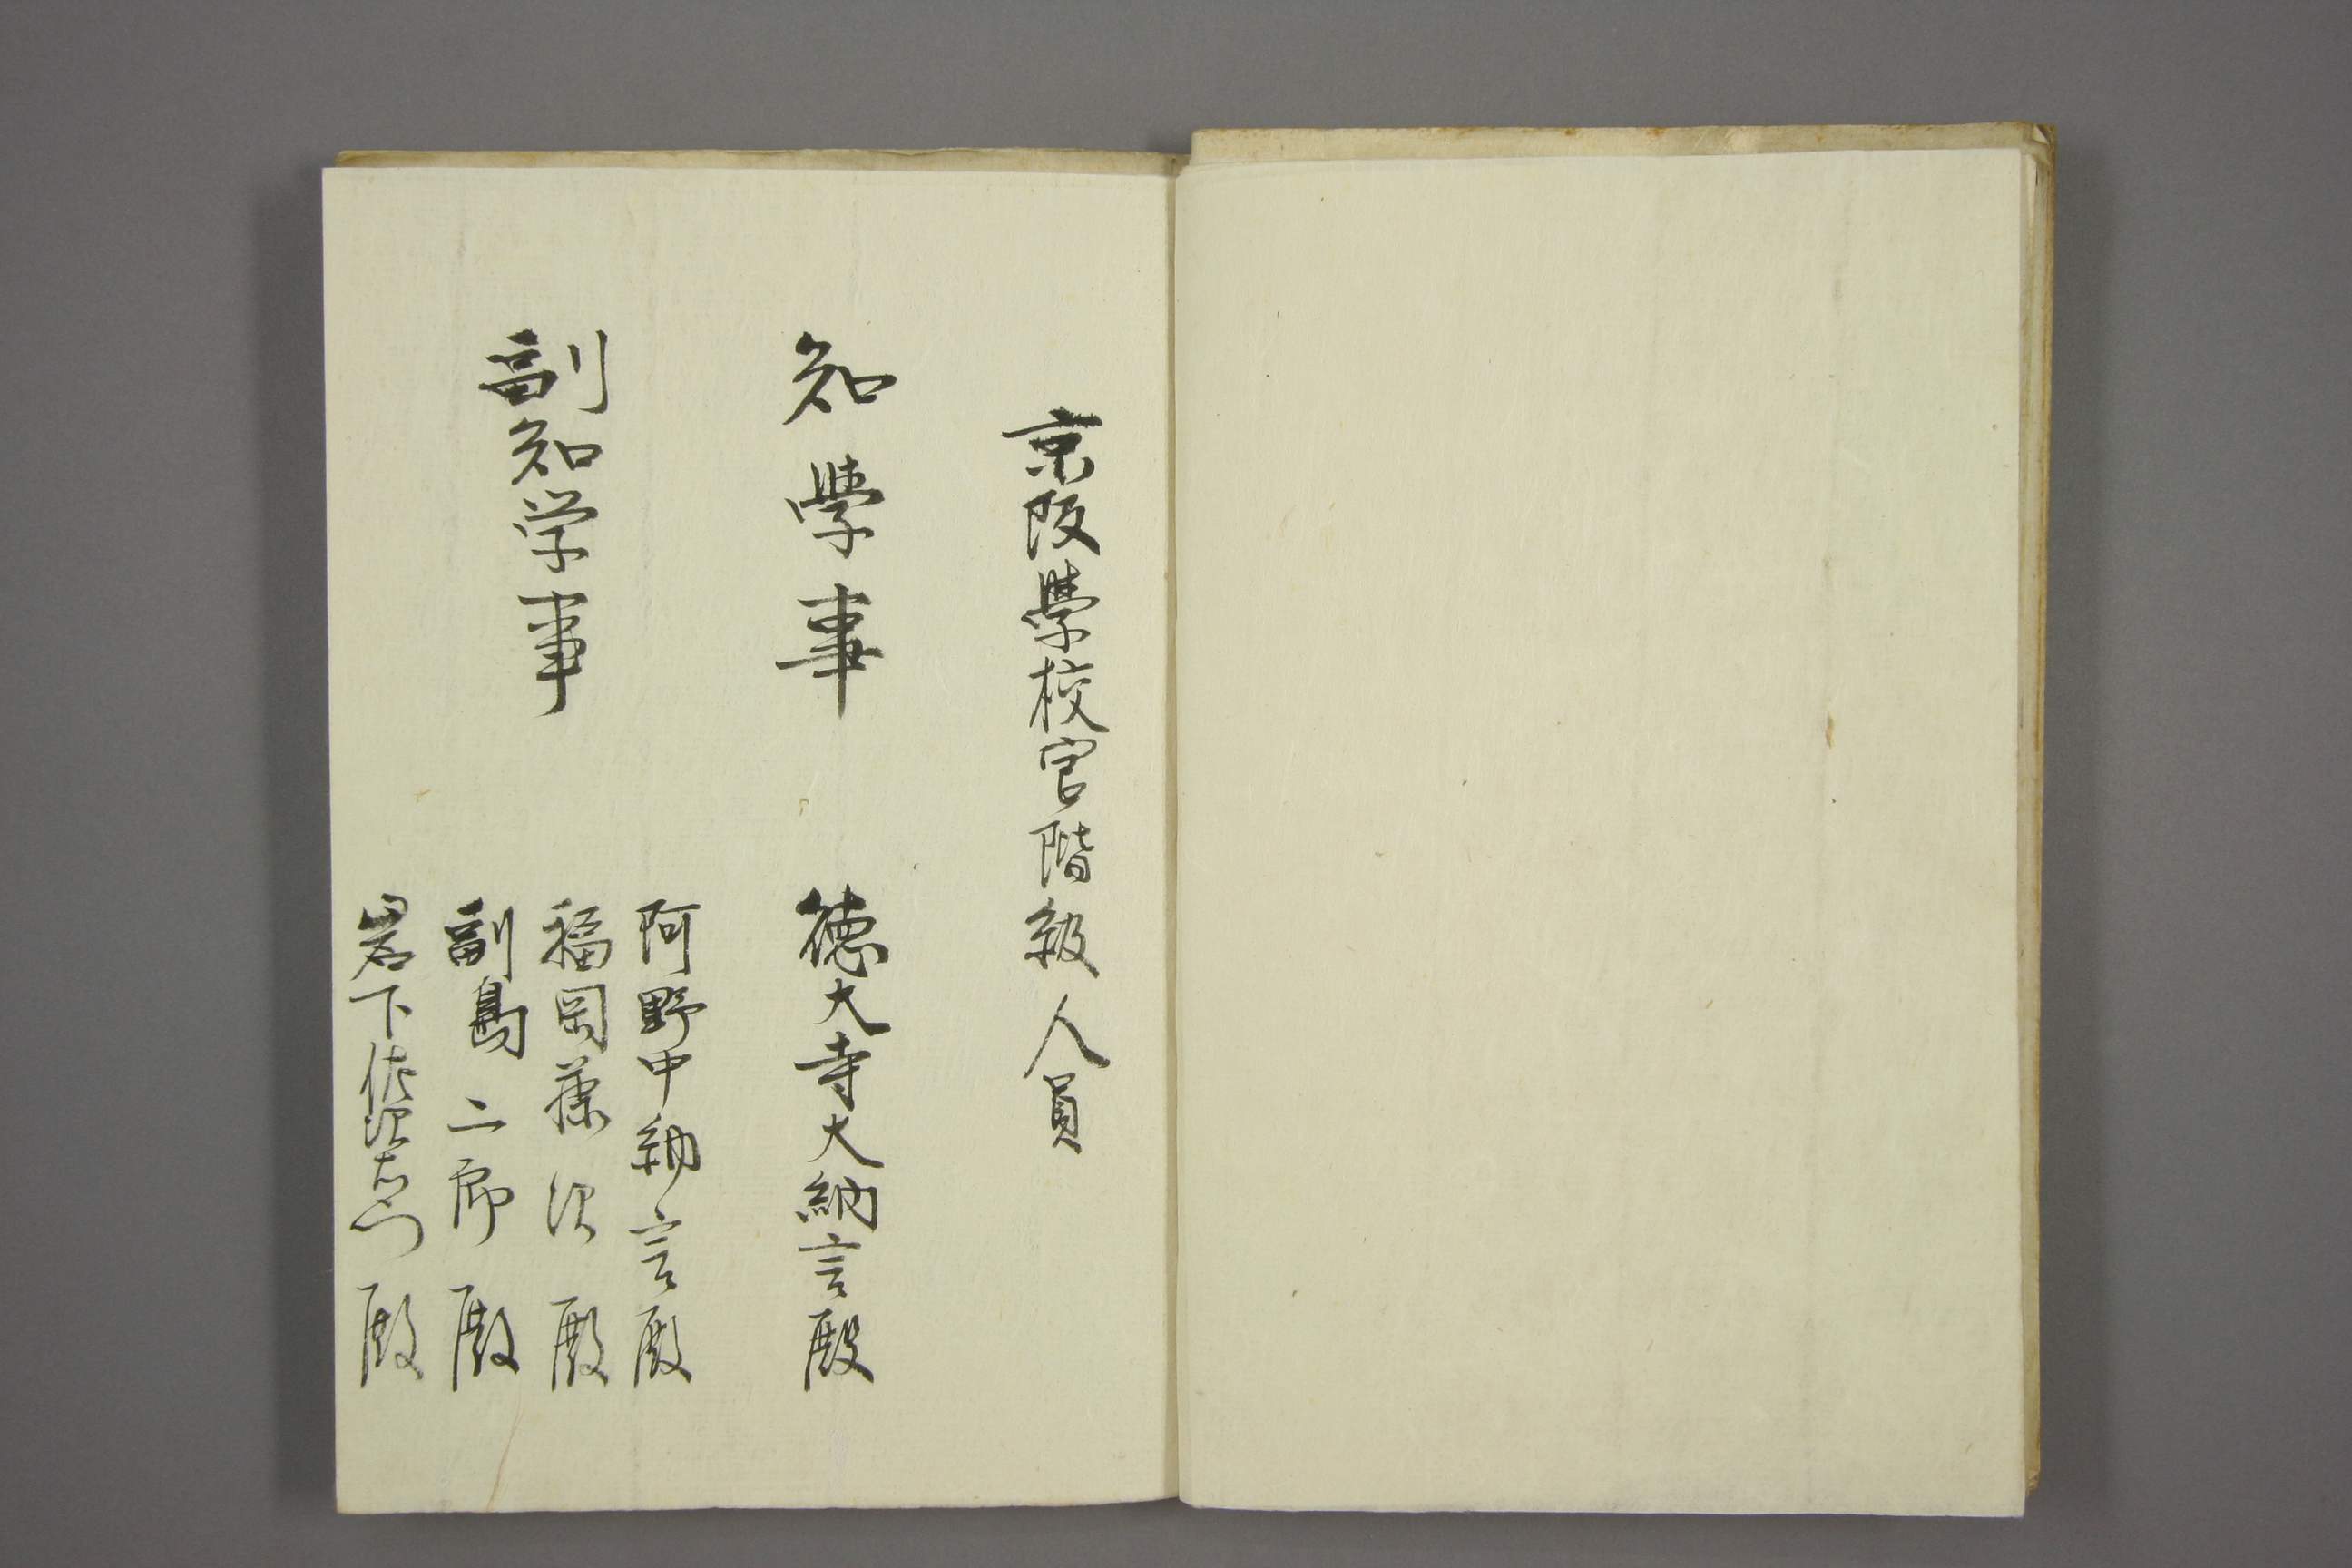 京阪學校官階級人員
知學事
徳大寺大納言殿
副知学事
阿野中納言殿
福岡藤次殿
副島二郎殿
岩下佐次右衛門殿